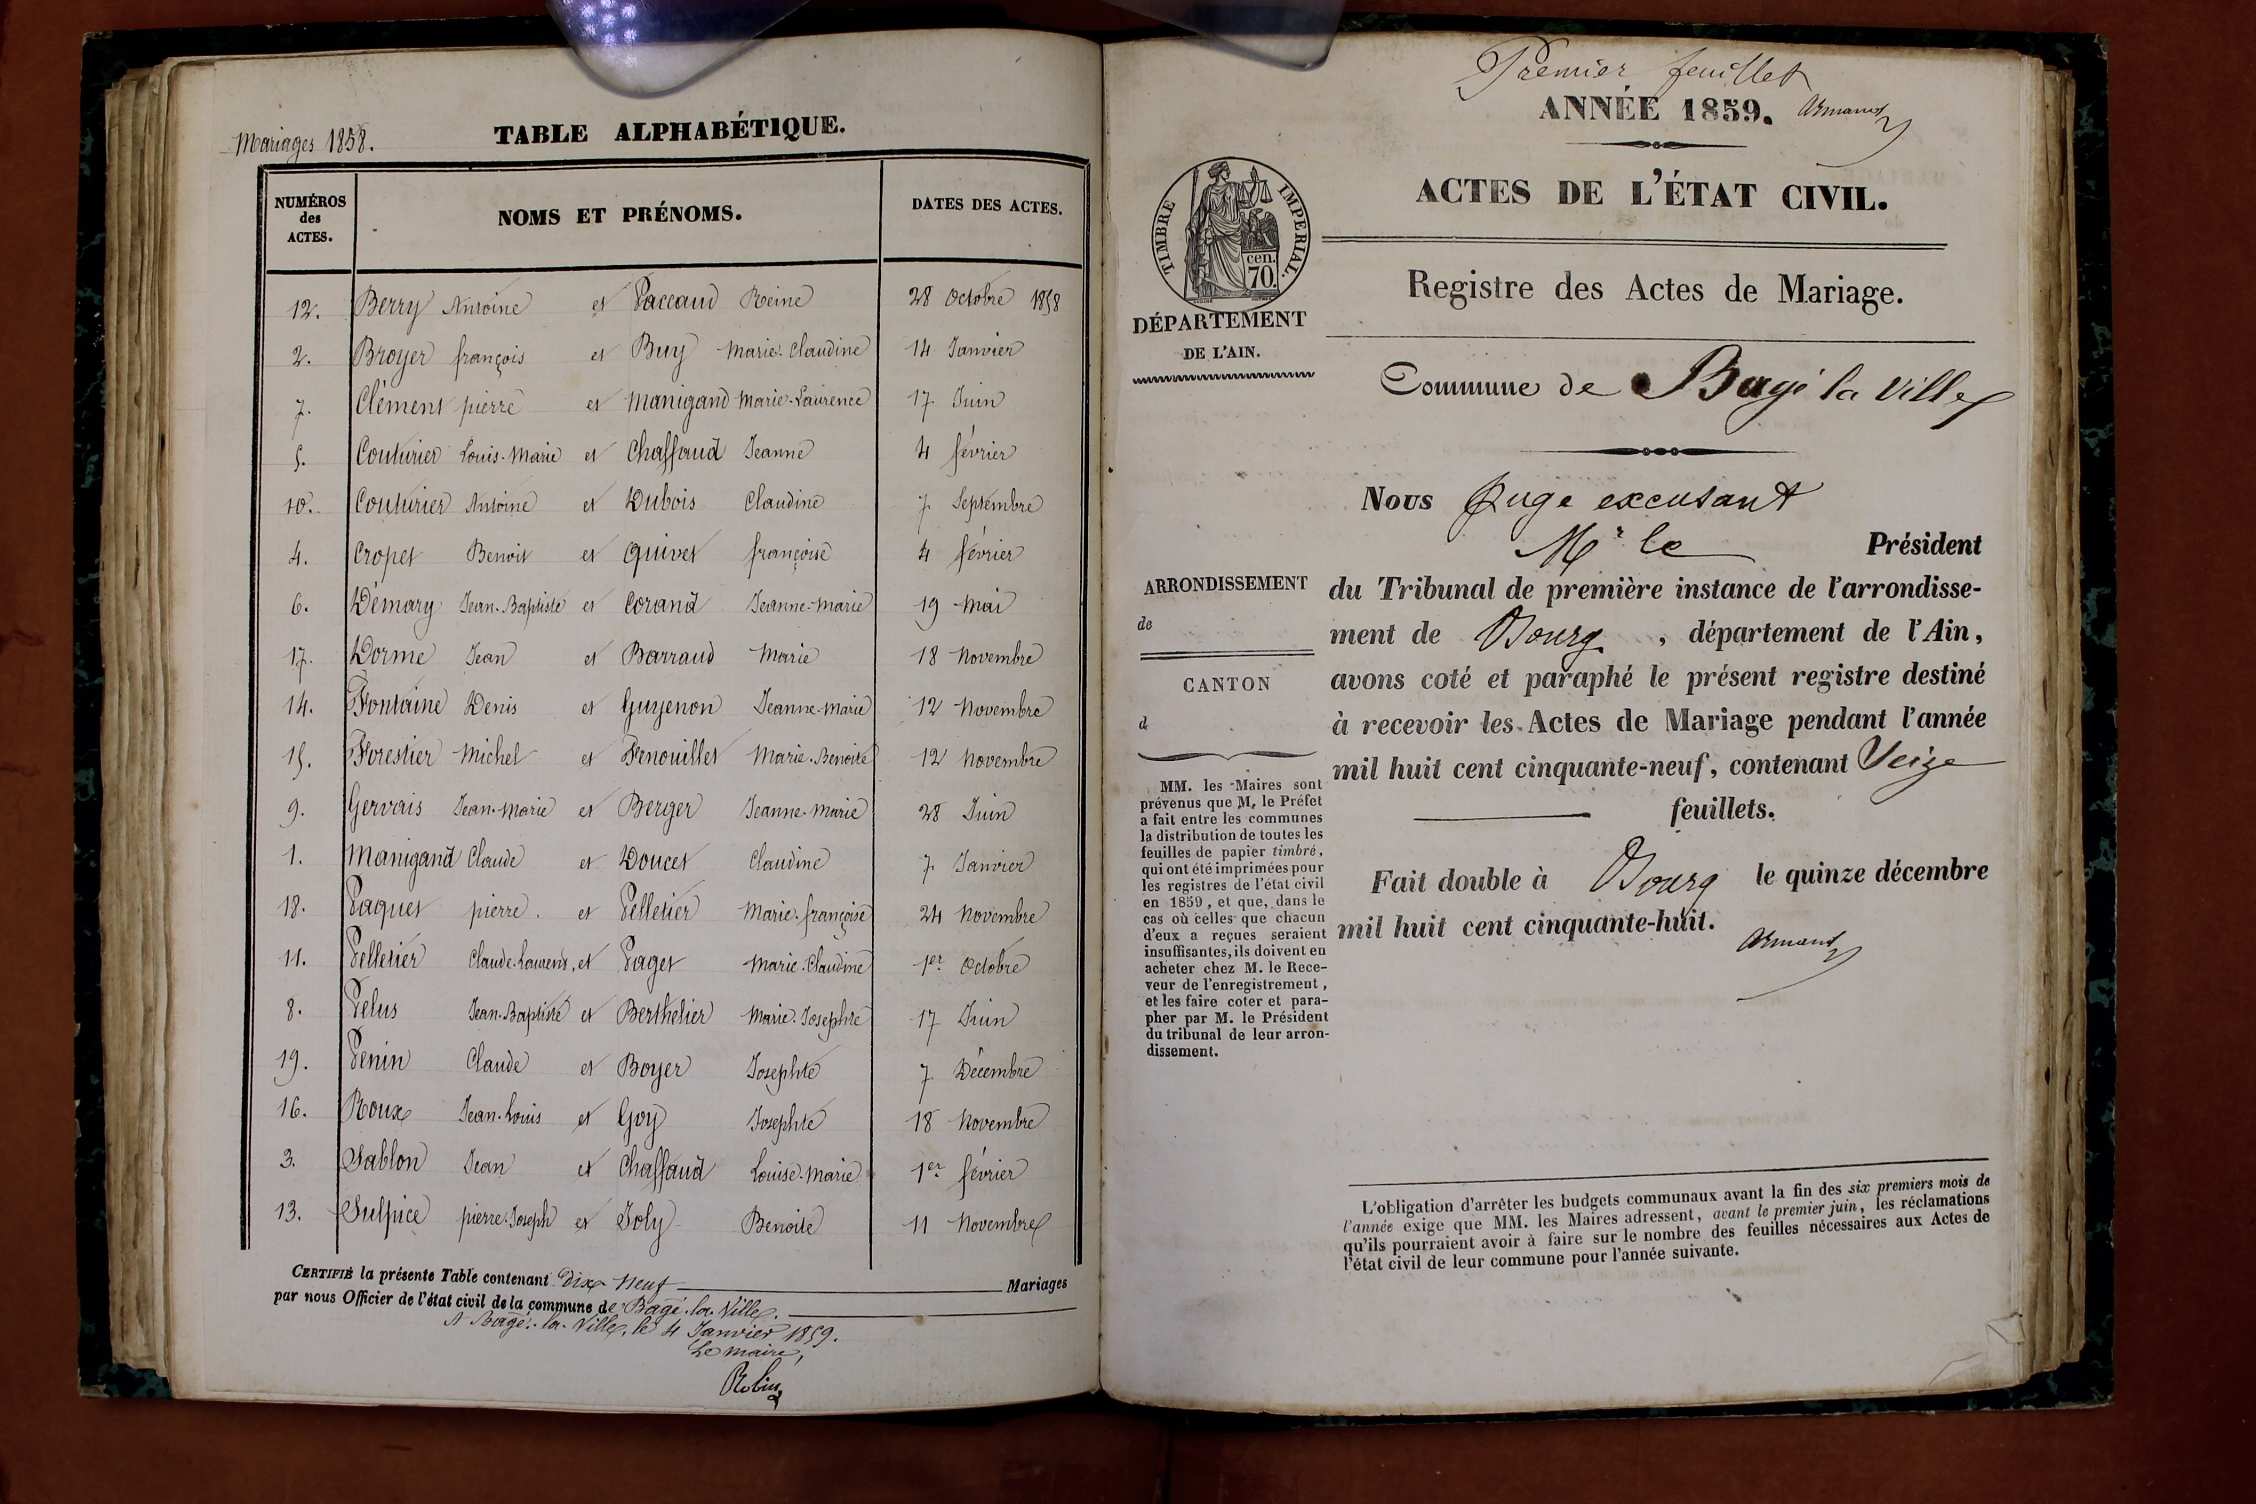 Mariages 1858.
TABLE ALPHABÉTIQUE.
NUMÉROS des ACTES.
NOMS ET PRÉNOMS.
DATES DES ACTES.
12. Berry Antoine et Paccaud Reine 28 Octobre 1858
2. Broyer françois et Buy Marie-Claudine 14 Janvier
7. Clément pierre et Manigand Marie-Laurence 17 Juin
5. Couturier Louis-Marie et Chaffaud Jeanne 4 février
10. Couturier Antoine et Dubois Claudine 7 Septembre
4. Cropet Benoit et Quivet françoise 4 février
6. Démary Jean-Baptiste et Corand Jeanne-Marie 19 Mai
17. Dorme Jean et Barraud Marie 18 Novembre
14. Fontaine Denis et Guyenon Jeanne-Marie 12 Novembre
15. Forestier Michel et Fenouillet Marie-Benoite 12 Novembre
9. Gervais Jean-Marie et Berger Jeanne-Marie 28 Juin
1. Manigand Claude et Doucet Claudine 7 Janvier
18. Paquet pierre. et Pelletier Marie-françoise 24 Novembre
11. Pelletier Claude-Laurent, et Paget Marie-Claudine 1er Octobre
8. Pelus Jean-Baptiste et Berthelier Marie-Josephte 17 Juin
19. Penin Claude et Boyer Josephte 7 Décembre
16. Roux Jean-Louis et Goy Josephte 18 Novembre
3. Sablon Jean et Chaffaud Louise-Marie 1er février
13. Sulpice pierre-Joseph et Joly Benoite 11 Novembre
CERTIFIÉ la présente Table contenant Dix Neuf Mariages
par nous Officier de l'état civil de la commune de Bagé-la-Ville.
A Bagé-la-Ville, le 4 Janvier 1859.
Le Maire,
Robin
Premier feuillet
ANNÉE 1859. Armand
ACTES DE L'ÉTAT CIVIL.
TIMBRE IMPERIAL.
cen.
70.
Registre des Actes de Mariage.
DÉPARTEMENT
DE L'AIN.
Commune de Bagé la Ville
Nous Juge excusant
Mr le Président
du Tribunal de première instance de l'arrondisse-
ment de Bourg, département de l'Ain,
avons coté et paraphé le présent registre destiné
à recevoir les Actes de Mariage pendant l'année
mil huit cent cinquante-neuf, contenant Seize
feuillets.
Fait double à Bourg le quinze décembre
mil huit cent cinquante-huit.
Armand
ARRONDISSEMENT
de
CANTON
d
MM. les Maires sont
prévenus que M. le Préfet
a fait entre les communes
la distribution de toutes les
feuilles de papier timbré,
qui ont été imprimées pour
les registres de l'état civil
en 1859, et que, dans le
cas où celles que chacun
d'eux a reçues seraient
insuffisantes, ils doivent en
acheter chez M. le Rece-
veur de l'enregistrement,
et les faire coter et para-
pher par M. le Président
du tribunal de leur arron-
dissement.
L'obligation d'arrêter les budgets communaux avant la fin des six premiers mois de
l'année exige que MM. les Maires adressent, avant le premier juin, les réclamations
qu'ils pourraient avoir à faire sur le nombre des feuilles nécessaires aux Actes de
l'état civil de leur commune pour l'année suivante.